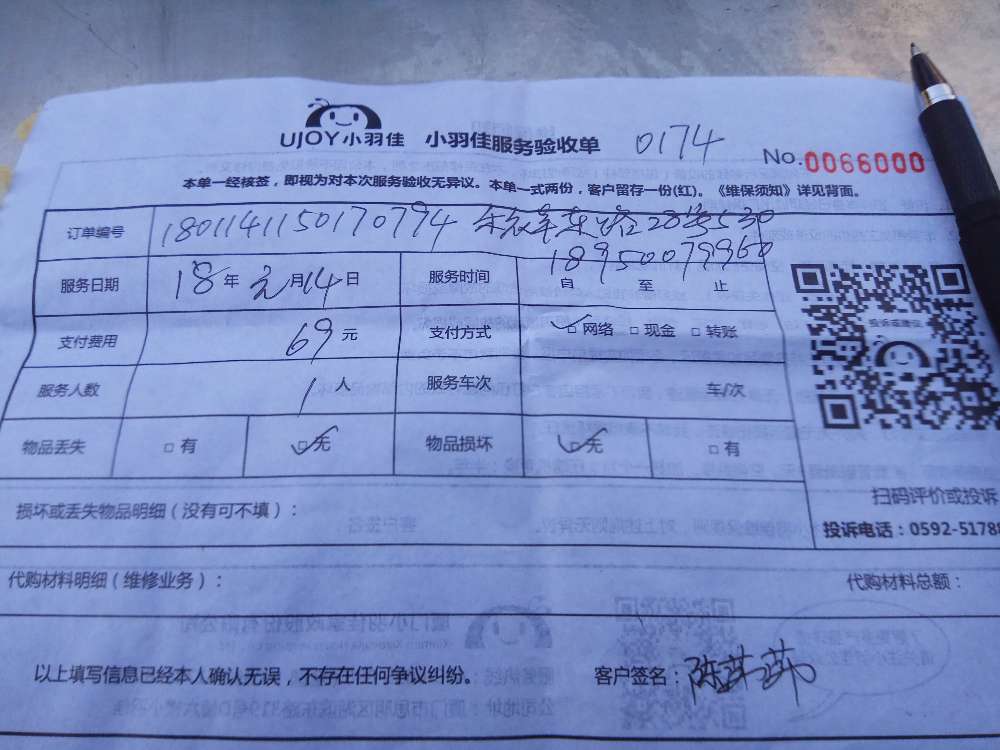 UJOY小羽佳 小羽佳服务验收单 0174
No.0066000
本单一经核签，即视为对本次服务验收无异议。本单一式两份，客户留存一份(红)。《维保须知》详见背面。
订单编号 180114115017​0794 东路28号530
18950079960
服务日期 18年元月14日 服务时间 自 至 止
支付费用 69元 支付方式 ☑网络 □现金 □转账
投诉或建议
服务人数 1人 服务车次 车/次
物品丢失 □有 ☑无 物品损坏 ☑无 □有
扫码评价或投诉
损坏或丢失物品明细（没有可不填）：
投诉电话：0592-5178
代购材料明细（维修业务）： 代购材料总额：
以上填写信息已经本人确认无误，不存在任何争议纠纷。 客户签名：陈